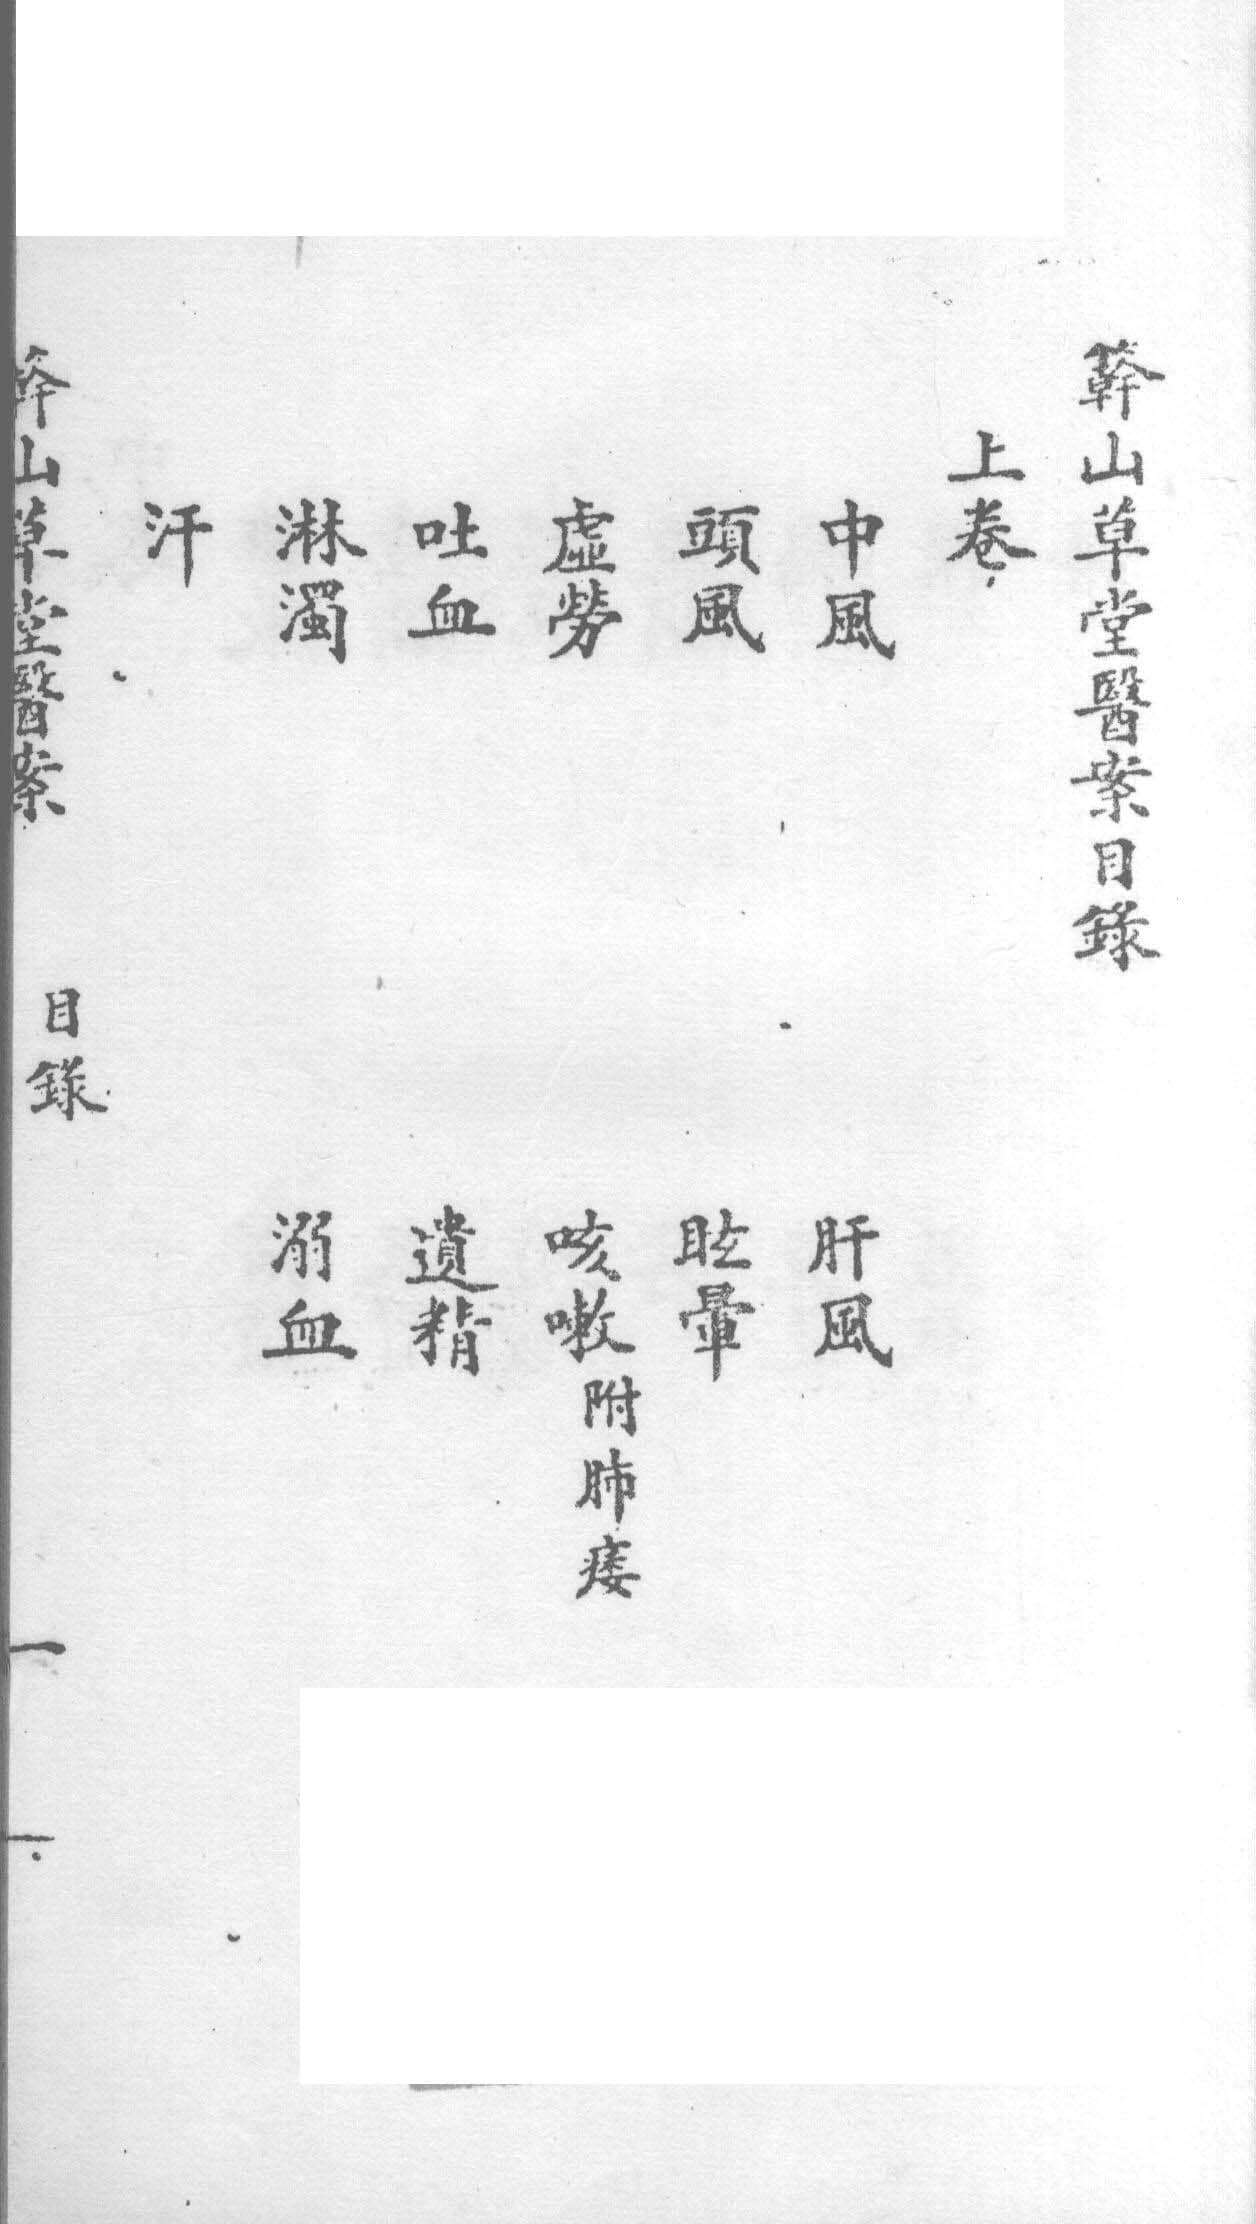 簳山草堂醫案目錄
上卷
中風 肝風
頭風 眩暈
虛勞 咳嗽附肺痿
吐血 遺精
淋濁 溺血
汗
簳山草堂醫案 目錄 一